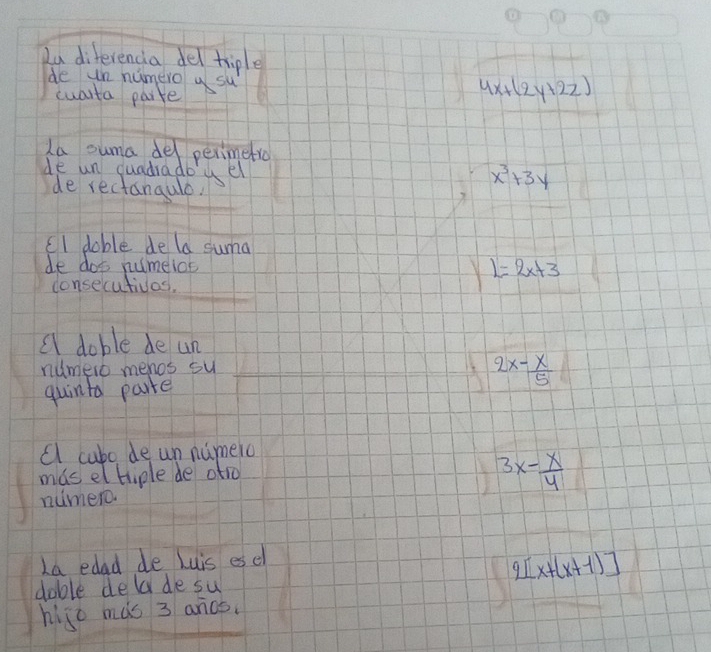 La diferencia del triple
de un número y su
cuarta parte
4x+(2y+2z)
La suma del perimetro
de un cuadrado y el
de rectangulo.
x³+3y
El doble de la suma
de dos números
consecutivos.
L=2x+3
El doble de un
número menos su
quinta parte
2x-x/5
El cubo de un número
más el triple de otro
número.
3x-x/4
La edad de Luis es el
doble de la de su
hijo más 3 años.
2[x+(x+1)]